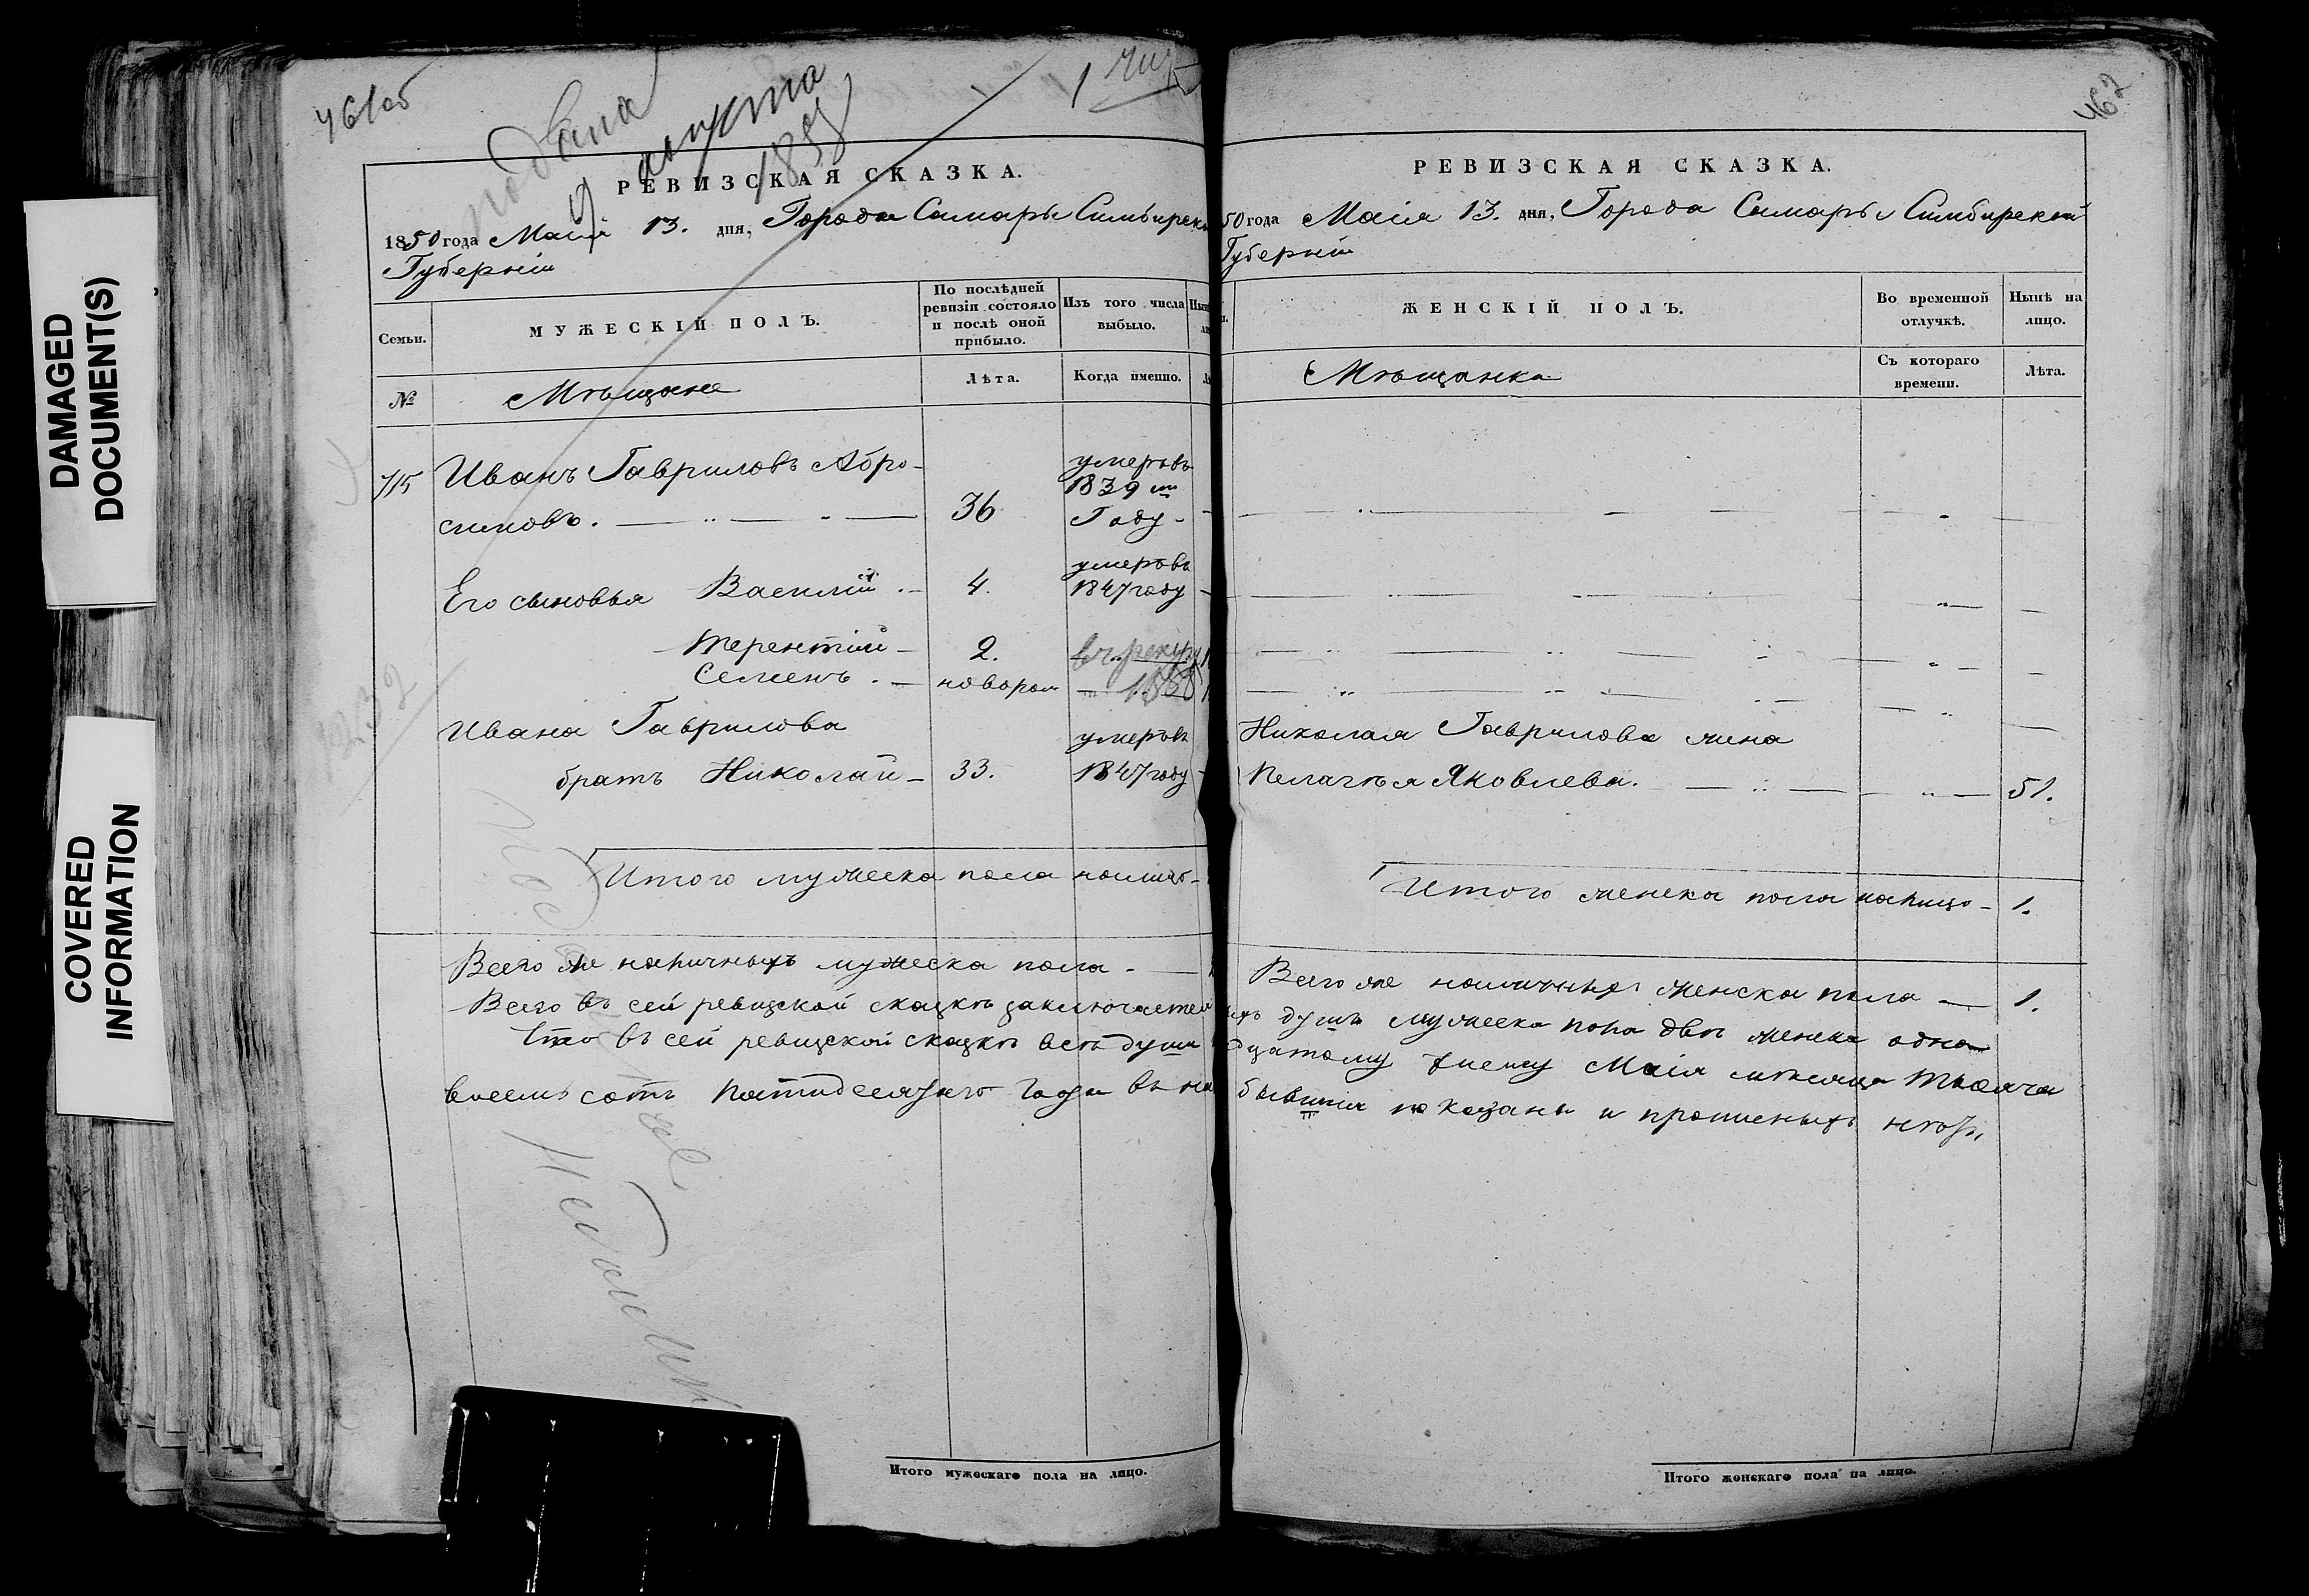 DAMAGED
DOCUMENT(S)
COVERED
INFORMATION
461об
подана
августа
РЕВИЗСКАЯ СКАЗКА.
1850 года Маія 13. дня, Города Самары Симбирско
Губерніи
Семьи.
МУЖЕСКІЙ ПОЛЪ.
По послѣдней
ревизіи состояло
и послѣ оной
прибыло.
Изъ того числа
выбыло.
№
Мѣщане
Лѣта.
Когда именно.
715
Иванъ Гавриловъ Абро-
симовъ.
36
умеръ въ
1839 м
Году
Его сыновья Василій
4.
умеръ въ
1847 году
Терентій
2.
въ рекру
Семенъ
новорож
Ивана Гаврилова
братъ Николай
33.
умеръ въ
1847 году
Итого мужеска пола налицо
Всего же наличныхъ мужеска пола
Всего въ сей ревизской сказкѣ заключается
Что въ сей ревизской сказкѣ всѣ души
восемь сотъ пятидесятого года въ на
Итого мужескаго пола на лицо.
462
РЕВИЗСКАЯ СКАЗКА.
50 года Маія 13. дня, Города Самары Симбирской
Губерніи
ЖЕНСКІЙ ПОЛЪ.
Во временной
отлучкѣ.
Нынѣ на
лицо.
Мѣщанка
Съ котораго
времени.
Лѣта.
Николая Гаврилова жена
Пелагѣя Яковлева.
51.
Итого женска пола налицо 1.
Всего же наличныхъ женска пола 1.
душъ мужеска пола двѣ женска одна
дцатому Маія мѣсяца тысяча
бывшия показаны и прописныхъ нѣтъ,
Итого женскаго пола на лицо.